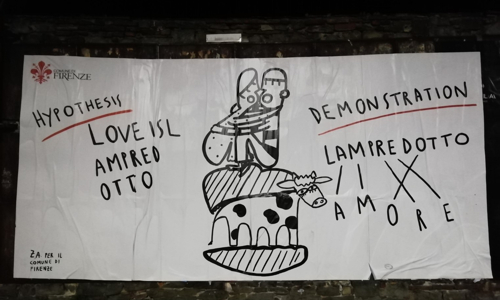 COMUNE DI
FIRENZE
HYPOTHESIS
LOVE ISL
AMPRED
OTTO
DEMONSTRATION
LAMPREDOTTO
AMORE
ZA PER IL
COMUNE DI
FIRENZE